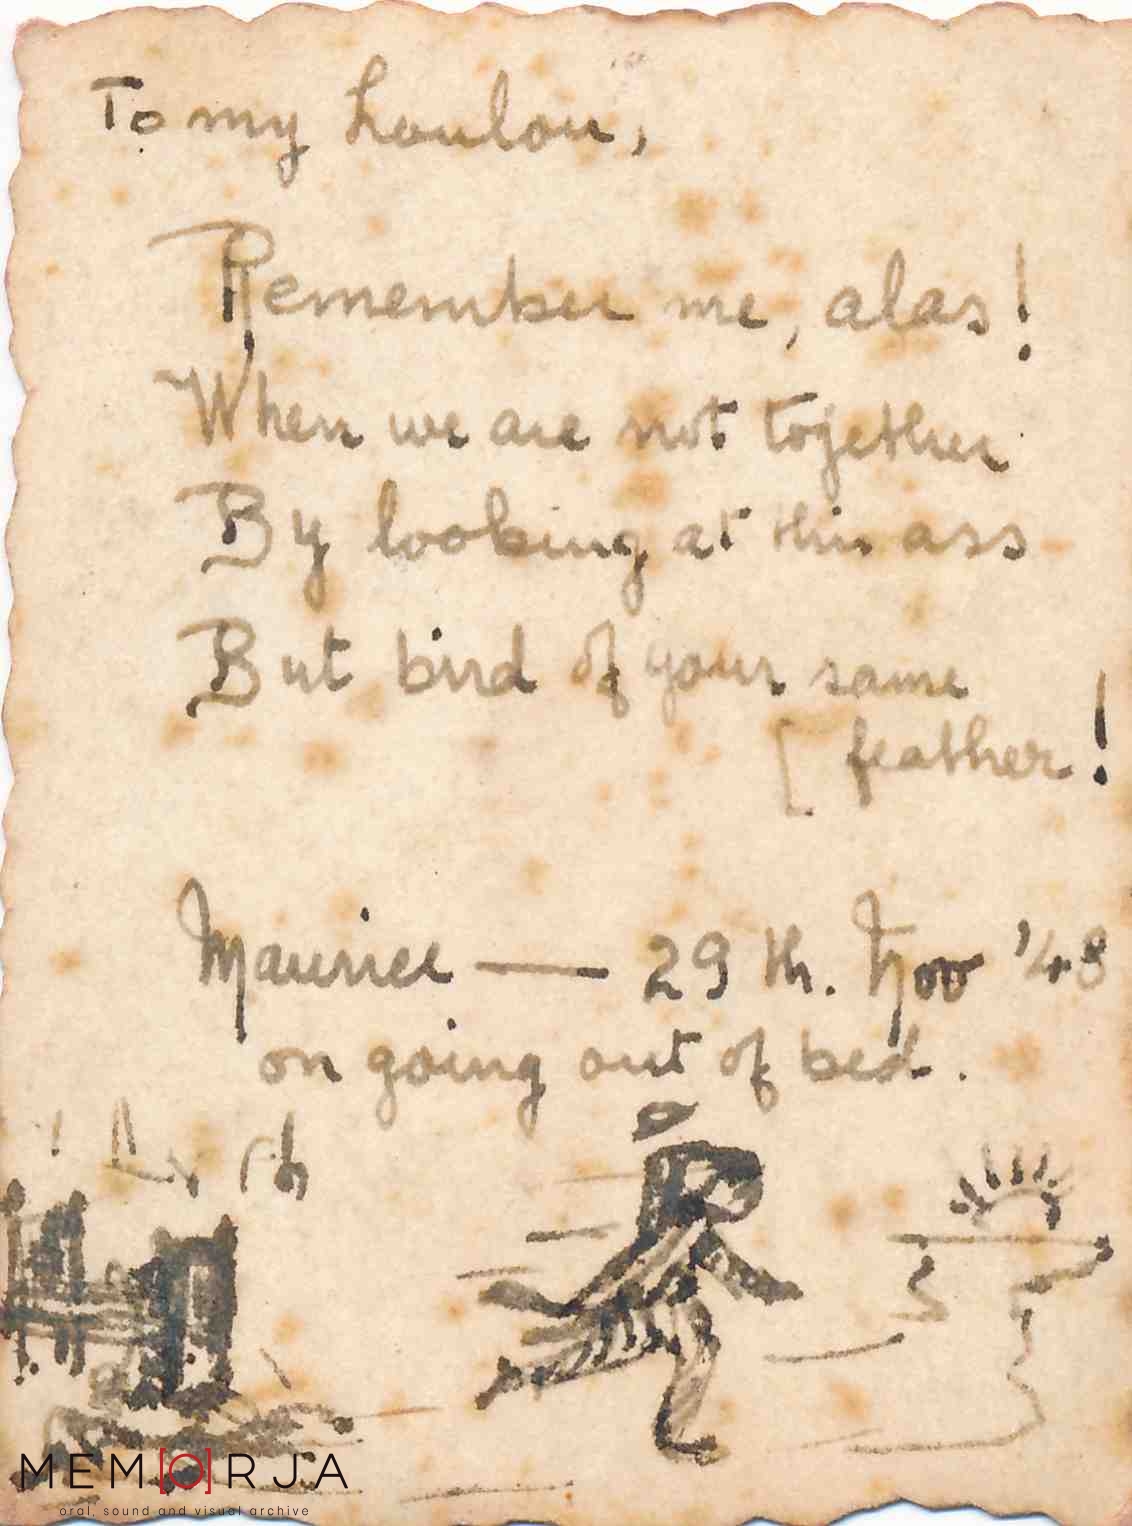 To my Loulou,
Remember me, alas!
When we are not together
By looking at this ass
But bird of your same
[ feather!
Maurice — 29 th. Nov '48
on going out of bed.
MEM[O]RJA
oral, sound and visual archive